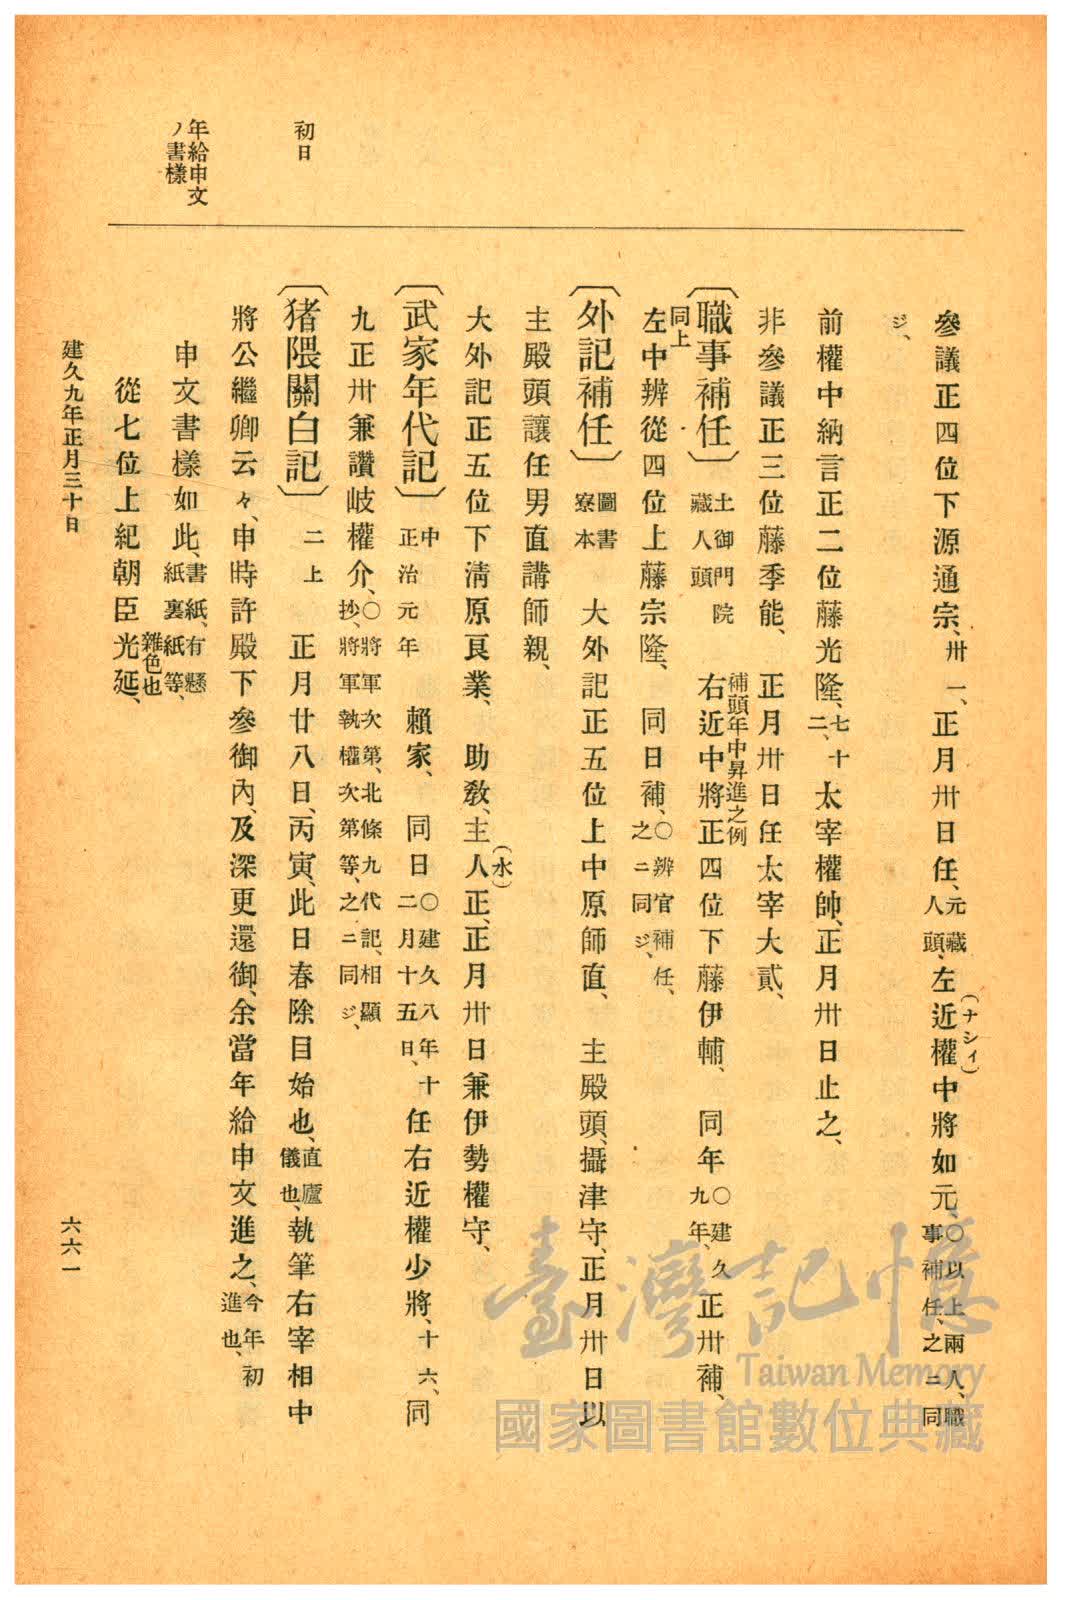 初日
年給申文
ノ書樣
參議正四位下源通宗、卅一、正月卅日任、元藏人頭、左近權中將如元、(ナシイ)〇以上兩人、職事補任、之ニ同
ジ、
前權中納言正二位藤光隆、七十二、太宰權帥、正月卅日止之、
非參議正三位藤季能、正月卅日任太宰大貳、
〔職事補任〕土御門院藏人頭 補頭年中昇進之例 右近中將正四位下藤伊輔、同年〇建久九年、正卅補、
同上
左中辨從四位上藤宗隆、同日補、〇辨官補任、之ニ同ジ、
〔外記補任〕圖書寮本 大外記正五位上中原師直、主殿頭、攝津守、正月卅日以
主殿頭讓任男直講師親、
大外記正五位下淸原良業、助敎、主人正、(水)正月卅日兼伊勢權守、
〔武家年代記〕中 正治元年 賴家、同日〇建久八年十二月十五日、任右近權少將、十六、同
九正卅兼讚岐權介、〇將軍次第、北條九代記、相顯抄、將軍執權次第等、之ニ同ジ、
〔猪隈關白記〕二上 正月廿八日、丙寅、此日春除目始也、直廬儀也、執筆右宰相中
將公繼卿云々、申時許殿下參御內、及深更還御、余當年給申文進之、今年初進也、
申文書樣如此、書紙、有懸紙裏紙等、
從七位上紀朝臣光延、雜色也
建久九年正月三十日
六六一
臺灣記憶
Taiwan Memory
國家圖書館數位典藏